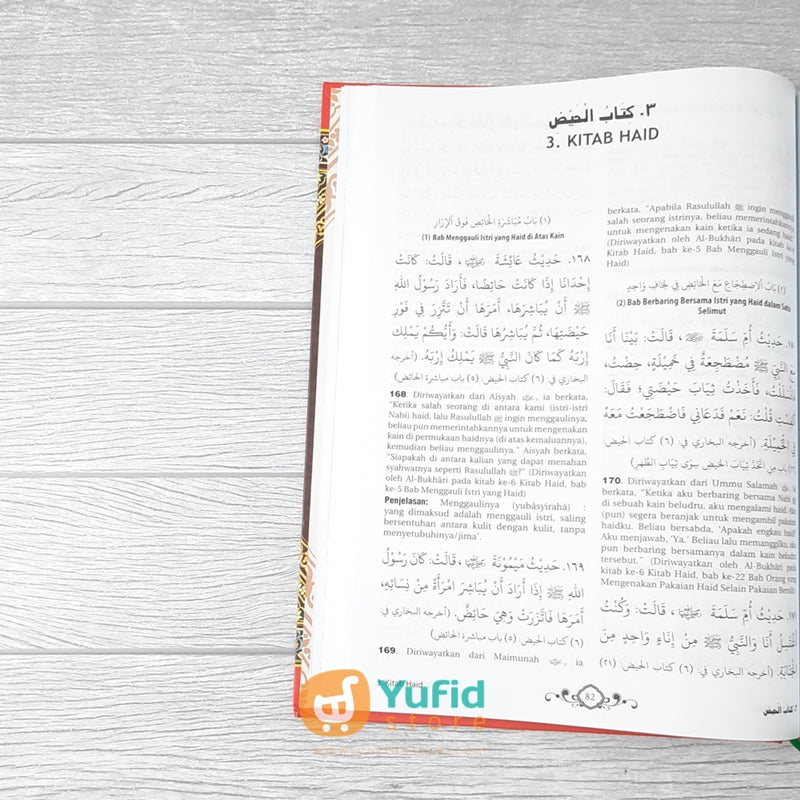 ٣. كِتَابُ الْحَيْضِ
3. KITAB HAID
(١) بَابُ مُبَاشَرَةِ الْحَائِضِ فَوْقَ الْإِزَارِ
(1) Bab Menggauli Istri yang Haid di Atas Kain
١٦٨. حَدِيْثُ عَائِشَةَ، قَالَتْ: كَانَتْ
إِحْدَانَا إِذَا كَانَتْ حَائِضًا، فَأَرَادَ رَسُوْلُ اللهِ
ﷺ أَنْ يُبَاشِرَهَا، أَمَرَهَا أَنْ تَتَّزِرَ فِي فَوْرِ
حَيْضَتِهَا، ثُمَّ يُبَاشِرُهَا قَالَتْ: وَأَيُّكُمْ يَمْلِكُ
إِرْبَهُ كَمَا كَانَ النَّبِيُّ ﷺ يَمْلِكُ إِرْبَهُ. (أخرجه
البخاري في: (٦) كتاب الحيض: (٥) باب مباشرة الحائض)
168. Diriwayatkan dari Aisyah, ia berkata,
"Ketika salah seorang di antara kami (istri-istri
Nabi) haid, lalu Rasulullah ﷺ ingin menggaulinya,
beliau pun memerintahkannya untuk mengenakan
kain di permukaan haidnya (di atas kemaluannya),
kemudian beliau menggaulinya." Aisyah berkata,
"Siapakah di antara kalian yang dapat menahan
syahwatnya seperti Rasulullah ﷺ?" (Diriwayatkan
oleh Al-Bukhâri pada kitab ke-6 Kitab Haid, bab
ke-5 Bab Menggauli Istri yang Haid)
Penjelasan: Menggaulinya (yubâsyirahâ) :
yang dimaksud adalah menggauli istri, saling
bersentuhan antara kulit dengan kulit, tanpa
menyetubuhinya/jima'.
١٦٩. حَدِيْثُ مَيْمُوْنَةَ، قَالَتْ: كَانَ رَسُوْلُ
اللهِ ﷺ إِذَا أَرَادَ أَنْ يُبَاشِرَ امْرَأَةً مِنْ نِسَائِهِ،
أَمَرَهَا فَاتَّزَرَتْ وَهِيَ حَائِضٌ. (أخرجه البخاري في:
(٦) كتاب الحيض: (٥) باب مباشرة الحائض)
169. Diriwayatkan dari Maimunah, ia
berkata, "Apabila Rasulullah ﷺ ingin menggauli
salah seorang istrinya, beliau memerintahkannya
untuk mengenakan kain ketika ia sedang haid."
(Diriwayatkan oleh Al-Bukhâri pada kitab ke-6
Kitab Haid, bab ke-5 Bab Menggauli Istri yang
Haid)
(٢) بَابُ الِاضْطِجَاعِ مَعَ الْحَائِضِ فِي لِحَافٍ وَاحِدٍ
(2) Bab Berbaring Bersama Istri yang Haid dalam Satu
Selimut
حَدِيْثُ أُمِّ سَلَمَةَ، قَالَتْ: بَيْنَا أَنَا
مَعَ النَّبِيِّ ﷺ مُضْطَجِعَةٌ فِي خَمِيْلَةٍ، حِضْتُ،
فَانْسَلَلْتُ، فَأَخَذْتُ ثِيَابَ حَيْضَتِي؛ فَقَالَ:
أَنُفِسْتِ قُلْتُ: نَعَمْ فَدَعَانِي فَاضْطَجَعْتُ مَعَهُ
فِي الْخَمِيْلَةِ. (أخرجه البخاري في: (٦) كتاب الحيض:
باب من اتخذ ثياب الحيض سوى ثياب الطهر)
170. Diriwayatkan dari Ummu Salamah, ia
berkata, "Ketika aku berbaring bersama Nabi ﷺ
di sebuah kain beludru, aku mengalami haid. Aku
(pun) segera beranjak untuk mengambil pakaian
haidku. Beliau bersabda, 'Apakah engkau haid?'
Aku menjawab, 'Ya.' Beliau lalu memanggilku, aku
pun berbaring bersamanya dalam kain beludru
tersebut." (Diriwayatkan oleh Al-Bukhâri pada
kitab ke-6 Kitab Haid, bab ke-22 Bab Orang yang
Mengenakan Pakaian Haid Selain Pakaian Bersih)
حَدِيْثُ أُمِّ سَلَمَةَ، قَالَتْ: وَكُنْتُ
أَغْتَسِلُ أَنَا وَالنَّبِيُّ ﷺ مِنْ إِنَاءٍ وَاحِدٍ مِنَ
الْجَنَابَةِ. (أخرجه البخاري في: (٦) كتاب الحيض: (٢١)
3. Kitab Haid
82
٣. كتاب الحيض
Yufid
store